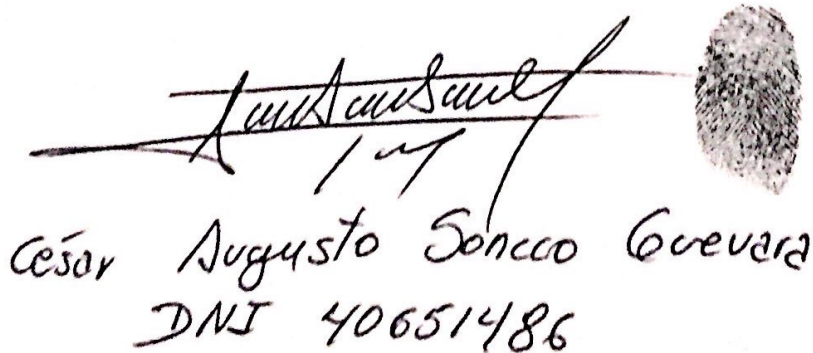 César Augusto Soncco Guevara
DNI 40651486